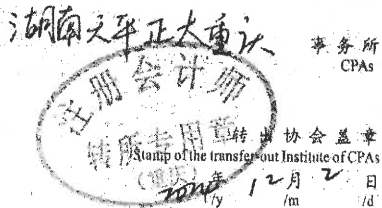 湖南天平正大重庆
事务所
CPAs
注册会计师
转所专用章
转出协会盖章
Stamp of the transfer-out Institute of CPAs
(重庆)
年 12 月 2 日
/y /m /d